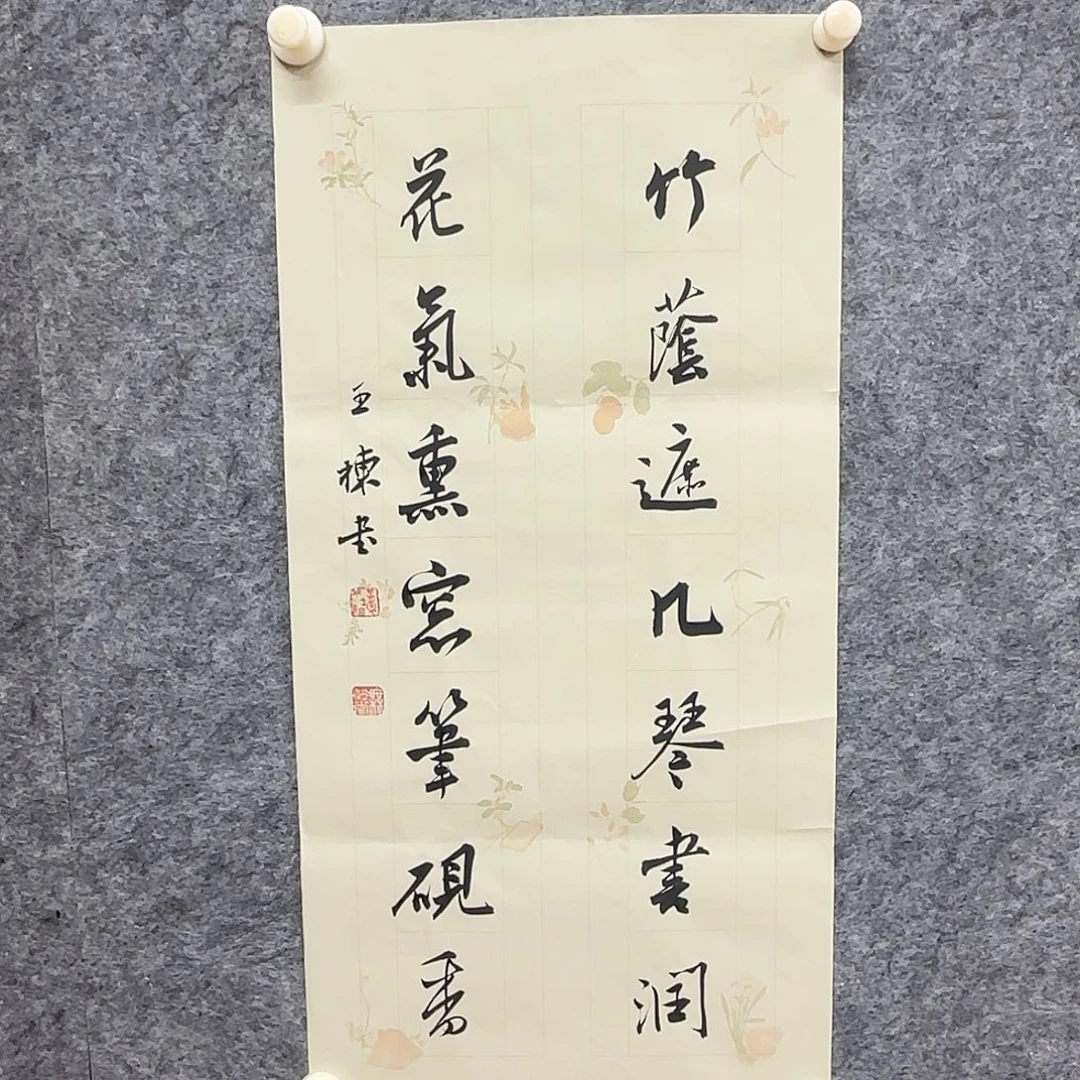 竹蔭遮几琴書潤
花氣熏窓筆硯香
王棟书